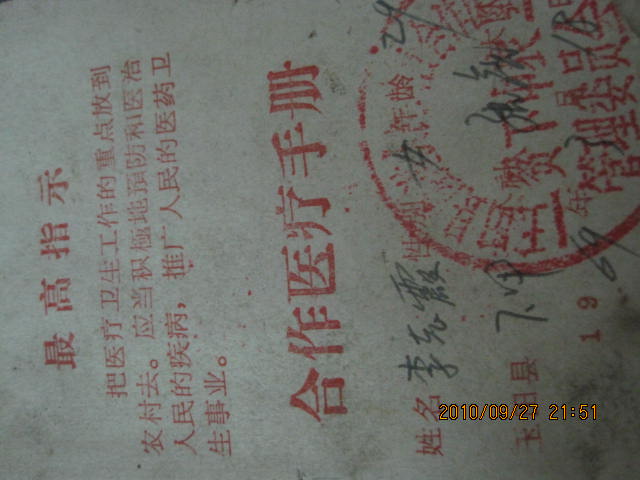 最高指示
把医疗卫生工作的重点放到
农村去。应当积极地预防和医治
人民的疾病，推广人民的医药卫
生事业。
合作医疗手册
姓名 李 霞 性别 女 年龄 29
玉田县
1969年
管理委员
2010/09/27 21:51